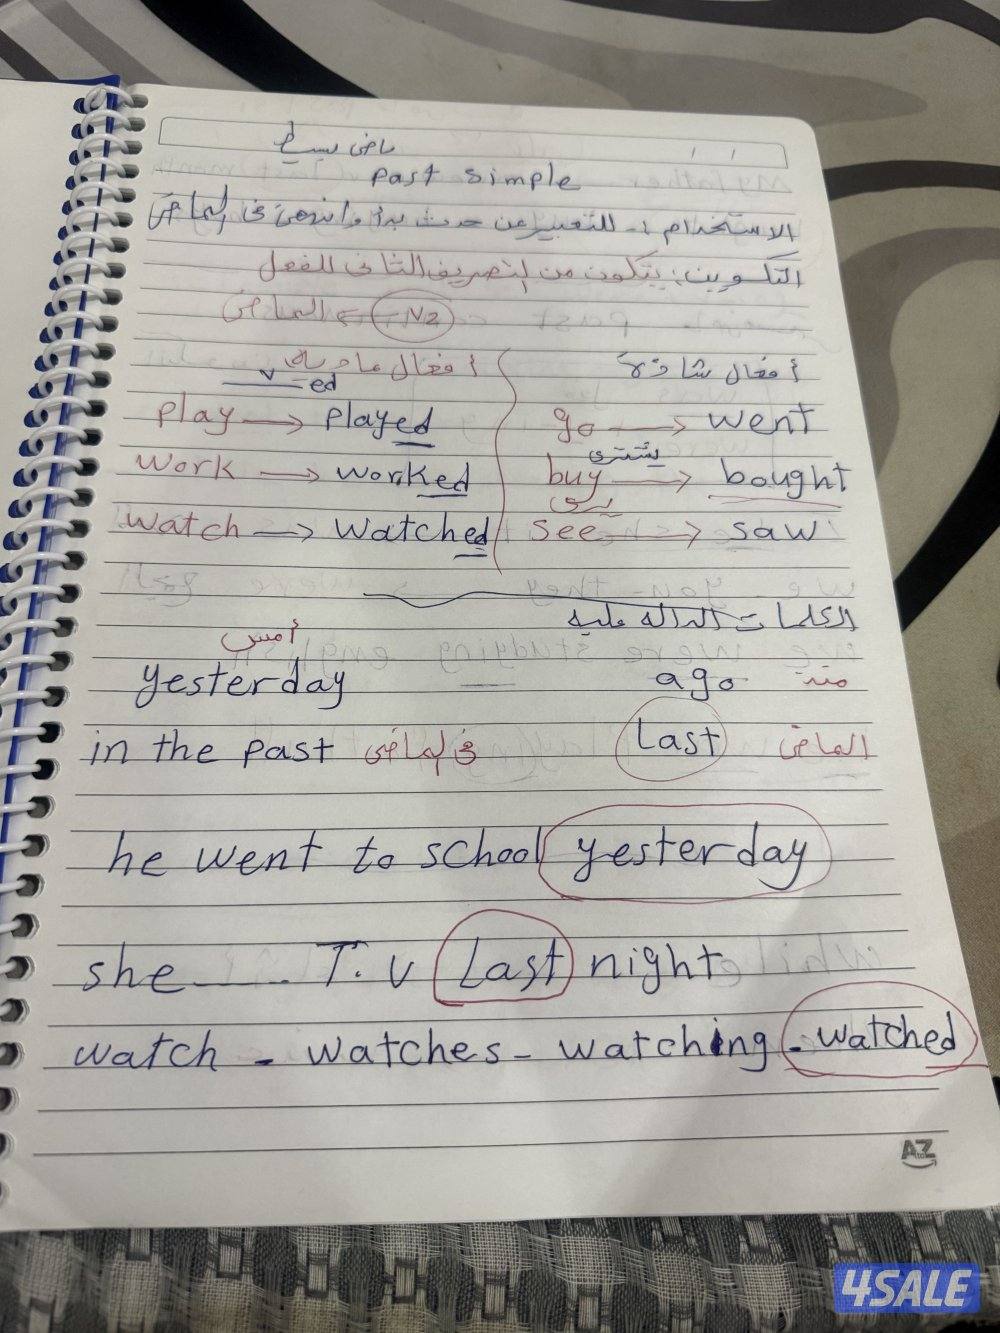 ماضى بسيط
past simple
الاستخدام :- للتعبير عن حدث بدأ وانتهى فى الماضى
التكوين: يتكون من التصريف الثانى للفعل
V2 ← الماضى
أفعال شاذة
أفعال عادية
v-ed
play → played
go → went
يشترى
work → worked
buy → bought
يرى
watch → watched
see → saw
الكلمات الداله عليه
أمس
yesterday
ago منذ
in the past فى الماضى
Last الماضى
he went to school yesterday
she ...... T.v Last night
watch - watches - watching - watched
A to Z
4SALE